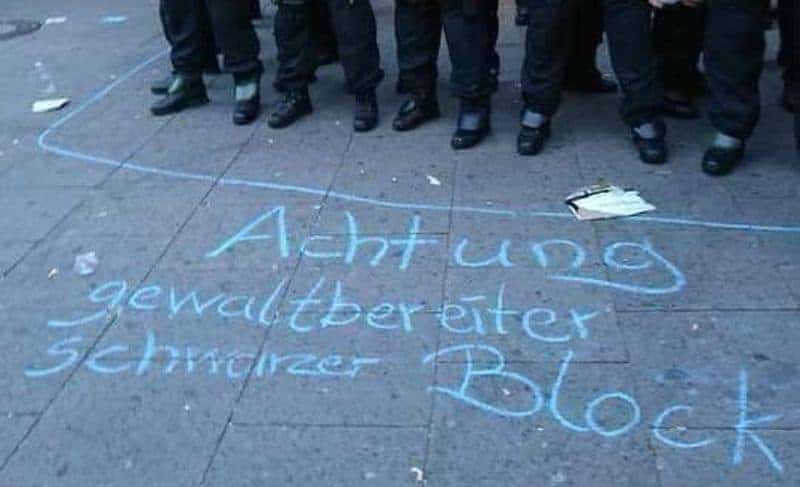 Achtung
gewaltbereiter
schwarzer Block